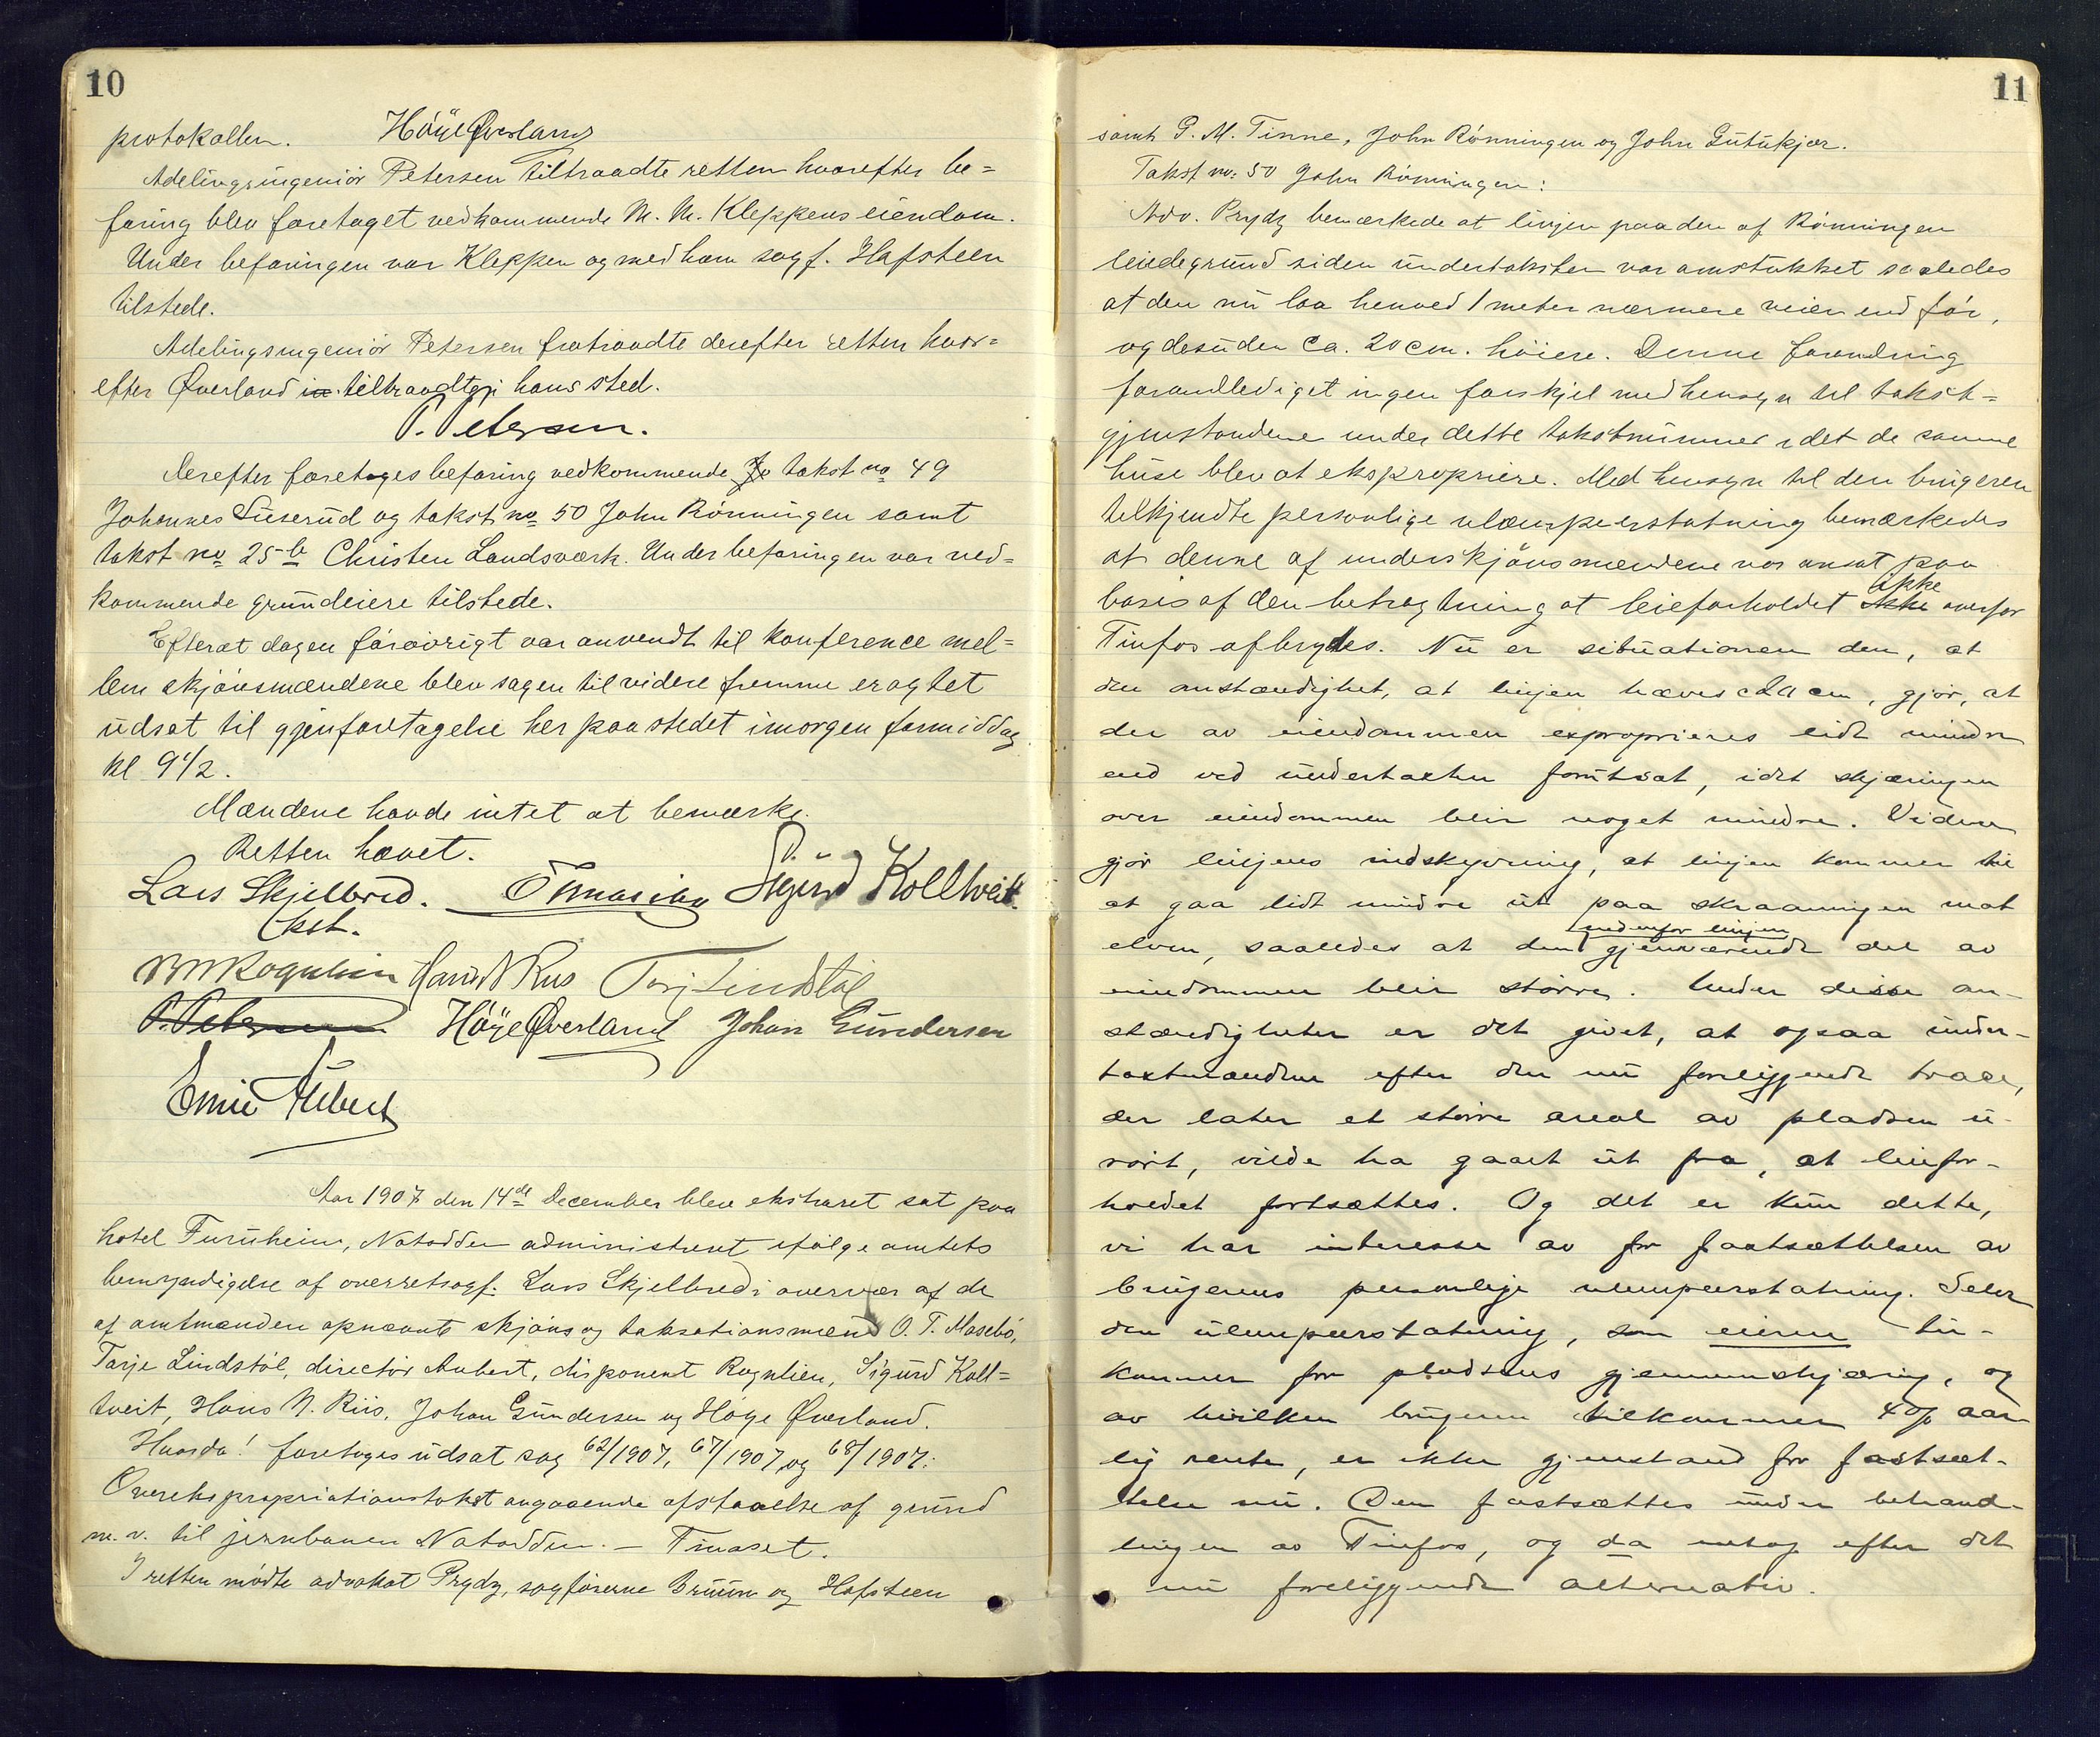 10
protokollen. Höye Øverland
Adelingsingeniör Petersen tiltraadte retten hvorefter be=
faring blev foretaget vedkommende M. M. Kleppens eiendom.
Under befaringen var Kleppen og med ham sagf. Hafsteen
tilstede.
Adelingsingeniör Petersen fratraadte derefter retten hvor=
efter Øverland in tiltraadte i hans sted.
P. Petersen.
Derefter foretoges befaring vedkommende Jo takst no 49
Johannes Suserud og takst no 50 John Rönningen samt
takst no 25 b Christen Landsværk. Under befaringen var ved=
kommende grundeiere tilstede.
Efterat dagen forøvrigt var anvendt til konference mel=
lem skjönsmændene blev sagen til videre fremme eragtet
udsat til gjenforetagelse her paa stedet imorgen formiddag
kl 9 1/2.
Mændene havde intet at bemærke.
Retten hævet.
Lars Skjelbred. O T Maseby Sigurd Kolltveit.
kst.
Rognlien Hans N Riis Tarj Lindstöl
P. Petersen Höye Øverland Johan Gundersen
Emil Aubert
Aar 1907 den 14de December blev ekstraret sat paa
hotel Furuheim, Notodden administreret ifølge amtets
bemyndigelse af overretssagf. Lars Skjelbred i overvær af de
af amtmanden opnævnte skjöns og taksationsmænd O. T. Masebö,
Tarje Lindstöl, directör Aubert, disponent Rognlien, Sigurd Koll=
tveit, Hans N. Riis, Johan Gundersen og Höye Øverland.
Hvorda! foretoges udsat sag 62/1907, 67/1907 og 68/1907:
Overekspropriationstakst angaaende afstaaelse af grund
m. v. til jernbanen Notodden. – Tinoset.
I retten mödte advokat Prydz, sagförerne Bruun og Hafsteen
11
samt G. M. Tinne, John Rönningen og John Gutukjær.
Takst no: 50 John Rönningen:
Adv. Prydz bemærkede at linjen paa den af Rönningen
leiede grund siden undertaksten var omstukket saaledes
at den nu laa henved 1 meter nærmere veien end før,
og desuden ca. 20 cm. höiere. Denne forandring
foranlediget ingen forskjel med hensyn til takst=
gjenstandene under dette takstnummer idet de samme
huse blev at ekspropriere. Med hensyn til den brugeren
tilkjendte personlige ulempeerstatning bemærkedes
at denne af underskjönsmændene var ansat paa
basis af den betragtning at leieforholdet ikke ikke overfor
Tinfos afbrydes. Nu er situationen den, at
den omstændighet, at linjen hæves 20 cm, gjör, at
der av eiendommen exproprieres lidt mindre
end ved undertaxten forutsat, idet skjæringen
over eiendommen blir noget mindre. Videre
gjör linjens indskyvning, at linjen kommer til
at gaa lidt mindre ut paa skraaningen mot
elven, saaledes at den nedenfor linjen gjenværende del av
eiendommen blir större. Under disse om-
stændigheter er det givet, at ogsaa under-
taxtmændene efter den nu foreliggende trace,
der later et större areal av pladsen u-
rört, vilde ha gaaet ut fra, at leiefor-
holdet fortsættes. Og det er kun dette,
vi har interesse av for fastsættelsen av
brugerens personlige ulempeerstatning. Selve
den ulempeerstatning, som eieren til-
kommer for pladsens gjennemskjæring, og
av hvilken brugeren tilkommer 4 % aar-
lig rente, er ikke gjenstand for fastsæt-
telse nu. Den fastsættes under behand-
lingen av Tinfos, og da netop efter det
nu foreliggende alternativ.